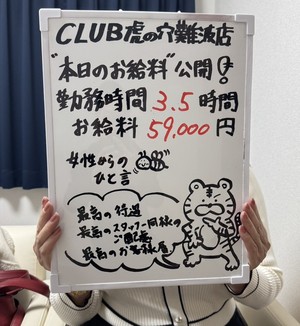 CLUB虎の穴難波店
"本日のお給料"公開！
勤務時間 3.5時間
お給料 59,000円
女性からの
ひと言
最高の待遇
最高のスタッフ同様の
最高のお客様層